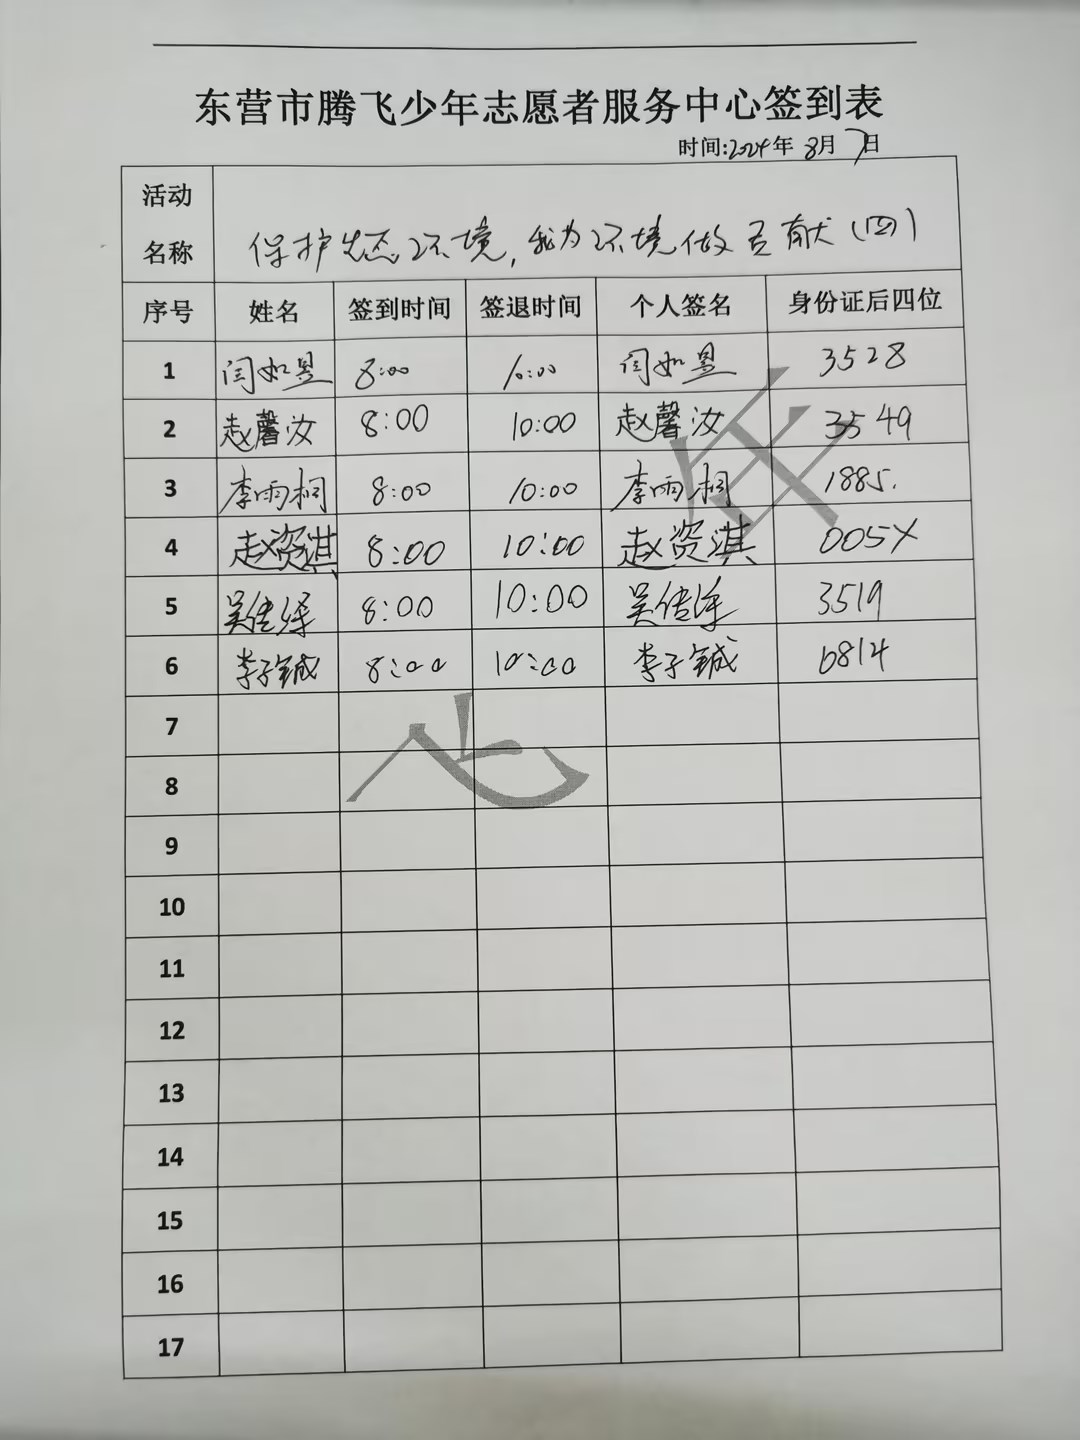 东营市腾飞少年志愿者服务中心签到表
时间:2024年 8月 7日
活动名称 保护生态环境,我为环境做贡献(四)
序号 姓名 签到时间 签退时间 个人签名 身份证后四位
1 闫如昱 8:00 10:00 闫如昱 3528
2 赵馨汝 8:00 10:00 赵馨汝 3549
3 李雨桐 8:00 10:00 李雨桐 1885.
4 赵资淇 8:00 10:00 赵资淇 005X
5 吴佳 8:00 10:00 吴佳 3519
6 李子铖 8:00 10:00 李子铖 0814
7
8
9
10
11
12
13
14
15
16
17